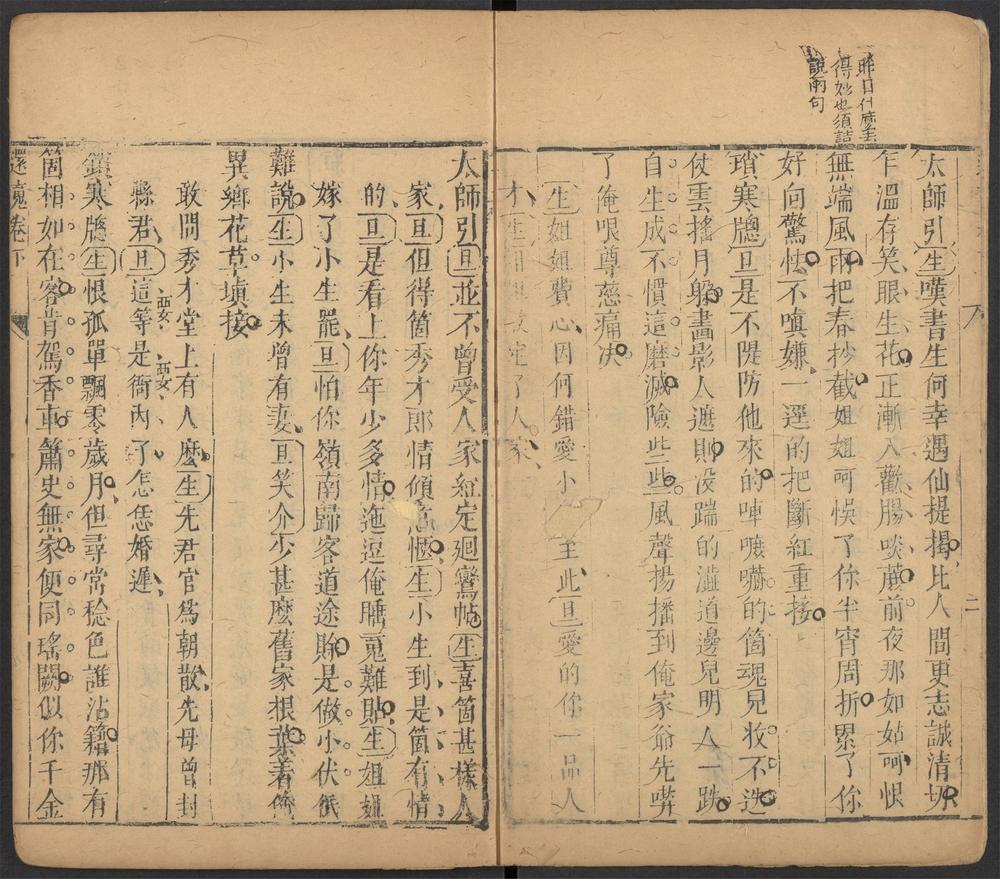 昨日什麽
得妙也須詰
說兩句
太師引生嘆書生何幸遇仙提揭比人間更志誠清切
乍溫存笑眼生花正漸入歡腸啖蔗前夜那如姑呵恨
無端風雨把春抄截姐姐呵悞了你半宵周折累了你
好囘驚怯不嗔嫌一逕的把斷紅重接
瑣寒牕旦是不隄防他來的啈嚷嚇的箇魂兒收不迭
仗雲搖月躱畫影人遮則没踹的澁道邊兒明人一跌
自生成不慣這磨滅險些些風聲揚播到俺家爺先喫
了俺哏尊慈痛决
生姐姐費心因何錯愛小至此旦愛的你一品人
才生定了人家
太師引旦並不曾受人家紅定廻鸞帖生喜箇甚樣人
家旦但得箇秀才郎情傾意愜生小生到是箇有情
的旦是看上你年少多情迤逗俺睡䰟難貼生姐姐
嫁了小生罷旦怕你嶺南歸客道途賖是做小伏低
難說生小生未曾有妻旦笑介少甚麽舊家根葉着俺
異鄉花草塡接
敢問秀才堂上有人麽生先君官爲朝散先母曾封
縣君旦這等是衙內了怎恁婚遲
鎖寒牕生恨孤單飄零歲月但尋常稔色誰沾籍那有
箇相如在客肯駕香車簫史無家便同瑤闕似你千金
還魂卷下
二